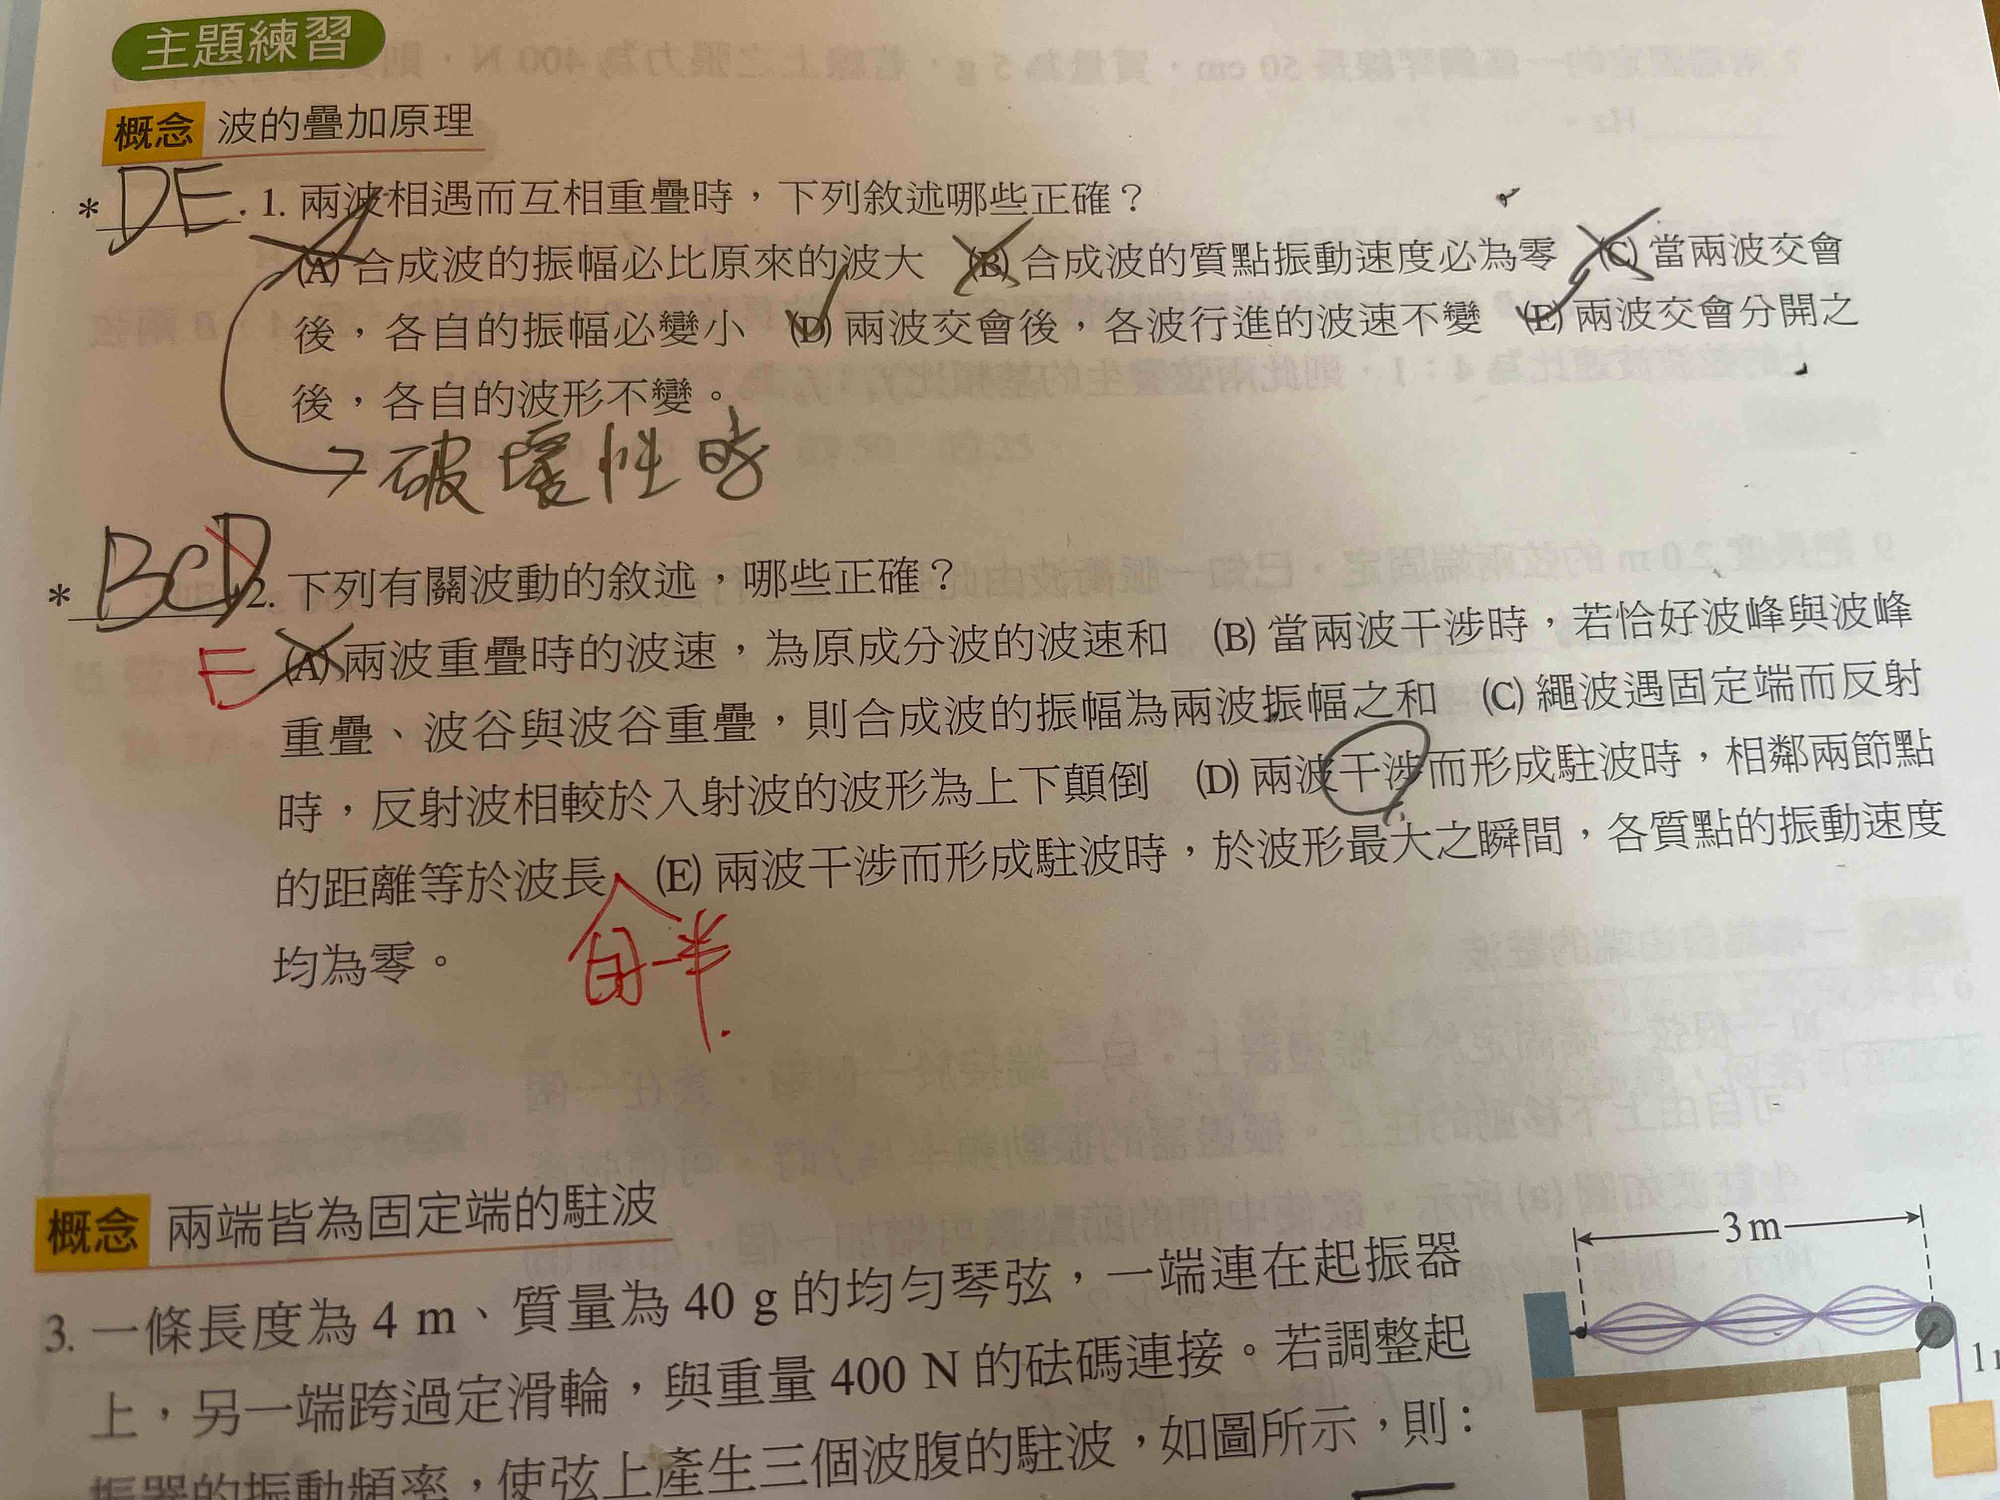 主題練習
概念 波的疊加原理
* DE . 1. 兩波相遇而互相重疊時，下列敘述哪些正確？
(A) 合成波的振幅必比原來的波大 (B) 合成波的質點振動速度必為零 (C) 當兩波交會
後，各自的振幅必變小 (D) 兩波交會後，各波行進的波速不變 (E) 兩波交會分開之
後，各自的波形不變。
破壞性時
* BCD 2. 下列有關波動的敘述，哪些正確？
E (A) 兩波重疊時的波速，為原成分波的波速和 (B) 當兩波干涉時，若恰好波峰與波峰
重疊、波谷與波谷重疊，則合成波的振幅為兩波振幅之和 (C) 繩波遇固定端而反射
時，反射波相較於入射波的波形為上下顛倒 (D) 兩波干涉而形成駐波時，相鄰兩節點
的距離等於波長 (E) 兩波干涉而形成駐波時，於波形最大之瞬間，各質點的振動速度
均為零。
的一半
概念 兩端皆為固定端的駐波
3. 一條長度為 4 m、質量為 40 g 的均勻琴弦，一端連在起振器
上，另一端跨過定滑輪，與重量 400 N 的砝碼連接。若調整起
振器的振動頻率，使弦上產生三個波腹的駐波，如圖所示，則：
3 m